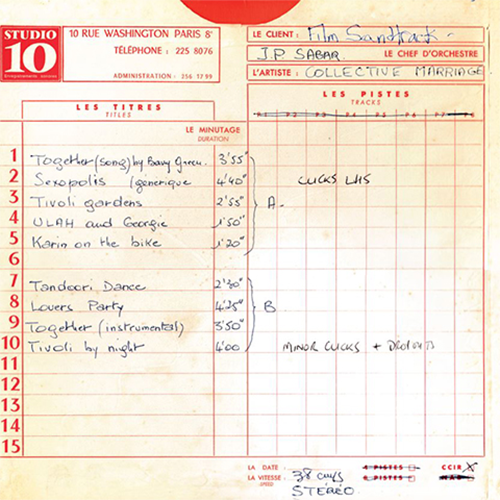 STUDIO
10
Enregistrements sonores
10 RUE WASHINGTON PARIS 8e
TÉLÉPHONE : 225 8076
ADMINISTRATION : 256 17 99
LE CLIENT : Film Sandtrack -
J.P. SABAR. LE CHEF D'ORCHESTRE
L'ARTISTE : COLLECTIVE MARRIAGE
LES TITRES
TITLES
LES PISTES
TRACKS
LE MINUTAGE
DURATION
P.1 P.2 P.3 P.4 P.5 P.6 P.7 P.8
1 Together (song) by Green. 3'55"
2 Sexopolis (générique 4'40" CLICKS LHS
3 Tivoli gardens 2'55" A-
4 ULAH and Georgie 1'50"
5 Karin on the bike 1'20"
6
7 Tandoori Dance 2'30"
8 Lovers Party 4'25" B
9 Together (instrumental) 3'50"
10 Tivoli by night 4'00 MINOR CLICKS + DROPOUTS
11
12
13
14
15
LA DATE :
LA VITESSE :
SPEED
38 cm/s
STÉRÉO.
4 PISTES
8 PISTES
CCIR